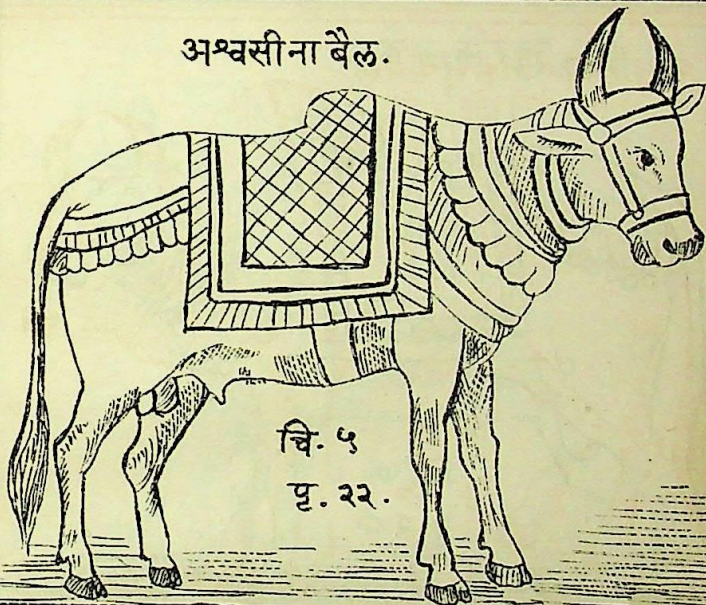 अश्वसीना बैल.
चि. ५
पृ. २२.